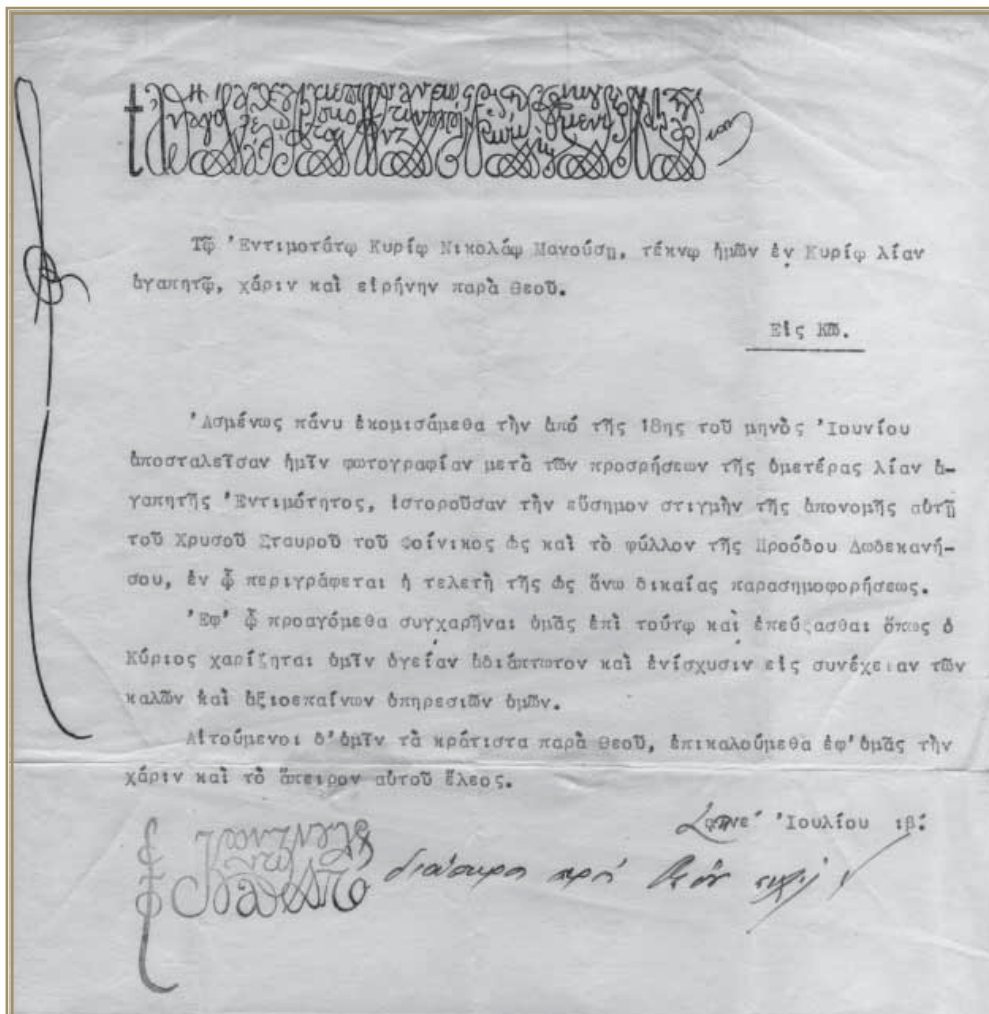 Τῷ Ἐντιμοτάτῳ Κυρίῳ Νικολάῳ Μανούσῃ, τέκνῳ ἡμῶν ἐν Κυρίῳ λίαν
ἀγαπητῷ, χάριν καὶ εἰρήνην παρὰ Θεοῦ.
Εἰς Κῶ.
Ἀσμένως πάνυ ἐκομισάμεθα τὴν ἀπό τῆς 18ης τοῦ μηνὸς Ἰουνίου
ἀποσταλεῖσαν ἡμῖν φωτογραφίαν μετὰ τῶν προσρήσεων τῆς ὑμετέρας λίαν ἀ-
γαπητῆς Ἐντιμότητος, ἱστοροῦσαν τὴν εὔσημον στιγμὴν τῆς ἀπονομῆς αὐτῇ
τοῦ Χρυσοῦ Σταυροῦ τοῦ Φοίνικος ὡς καὶ τὸ φύλλον τῆς Προόδου Δωδεκανή-
σου, ἐν ᾧ περιγράφεται ἡ τελετὴ τῆς ὡς ἄνω δικαίας παρασημοφορήσεως.
Ἐφ' ᾧ προαγόμεθα συγχαρῆναι ὑμᾶς ἐπὶ τούτῳ καὶ ἐπεύξασθαι ὅπως ὁ
Κύριος χαρίζηται ὑμῖν ὑγείαν ἀδιάπτωτον καὶ ἐνίσχυσιν εἰς συνέχειαν τῶν
καλῶν καὶ ἀξιοεπαίνων ὑπηρεσιῶν ὑμῶν.
Αἰτούμενοι δ'ὑμῖν τὰ κράτιστα παρὰ Θεοῦ, ἐπικαλούμεθα ἐφ'ὑμᾶς τὴν
χάριν καὶ τὸ ἄπειρον αὐτοῦ ἔλεος.
Ἰουλίου ιβ΄
διάπυρος πρὸς Θεὸν εὐχέτης